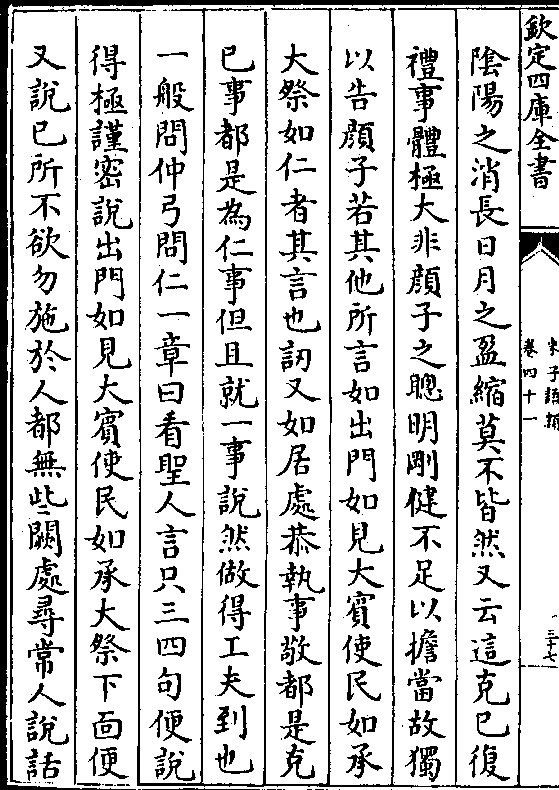 欽定四庫全書
朱子語類
卷四十一
三十七
陰陽之消長日月之盈縮莫不皆然又云這克己復
禮事體極大非顔子之聰明剛健不足以擔當故獨
以告顔子若其他所言如出門如見大賔使民如承
大祭如仁者其言也訒又如居處恭執事敬都是克
已事都是為仁事但且就一事說然做得工夫到也
一般問仲弓問仁一章曰看聖人言只三四句便說
得極謹密說出門如見大賔使民如承大祭下面便
又說已所不欲勿施於人都無些闕處尋常人說話